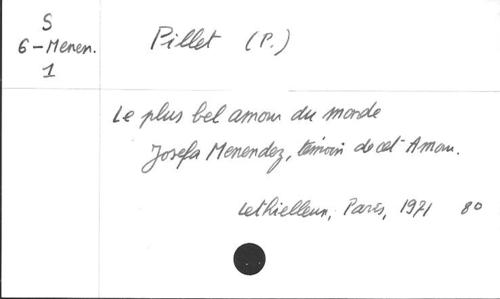 S
6-Menen.
1
Pillet (P.)
Le plus bel amour du monde
Josefa Menendez, témoin de cet Amour.
Lethielleux, Paris, 1971 80